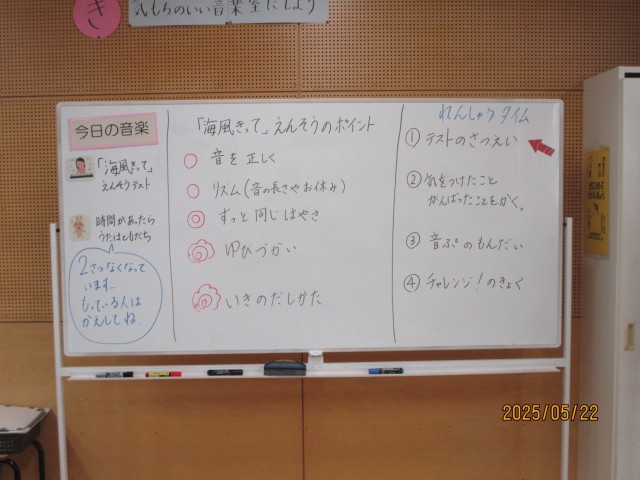 き
気もちのいい音楽室にしよう
今日の音楽
「海風きって」
えんそうテスト
時間があったら
うたはともだち
2さつなくなって
います…
もっている人は
かえしてね。
「海風きって」えんそうのポイント
音を正しく
リズム(音の長さやお休み)
ずっと同じはやさ
ゆびづかい
いきのだしかた
れんしゅうタイム
① テストのさつえい
② 気をつけたこと
がんばったことをかく。
③ 音ぷのもんだい
④ チャレンジ!のきょく
2025/05/22